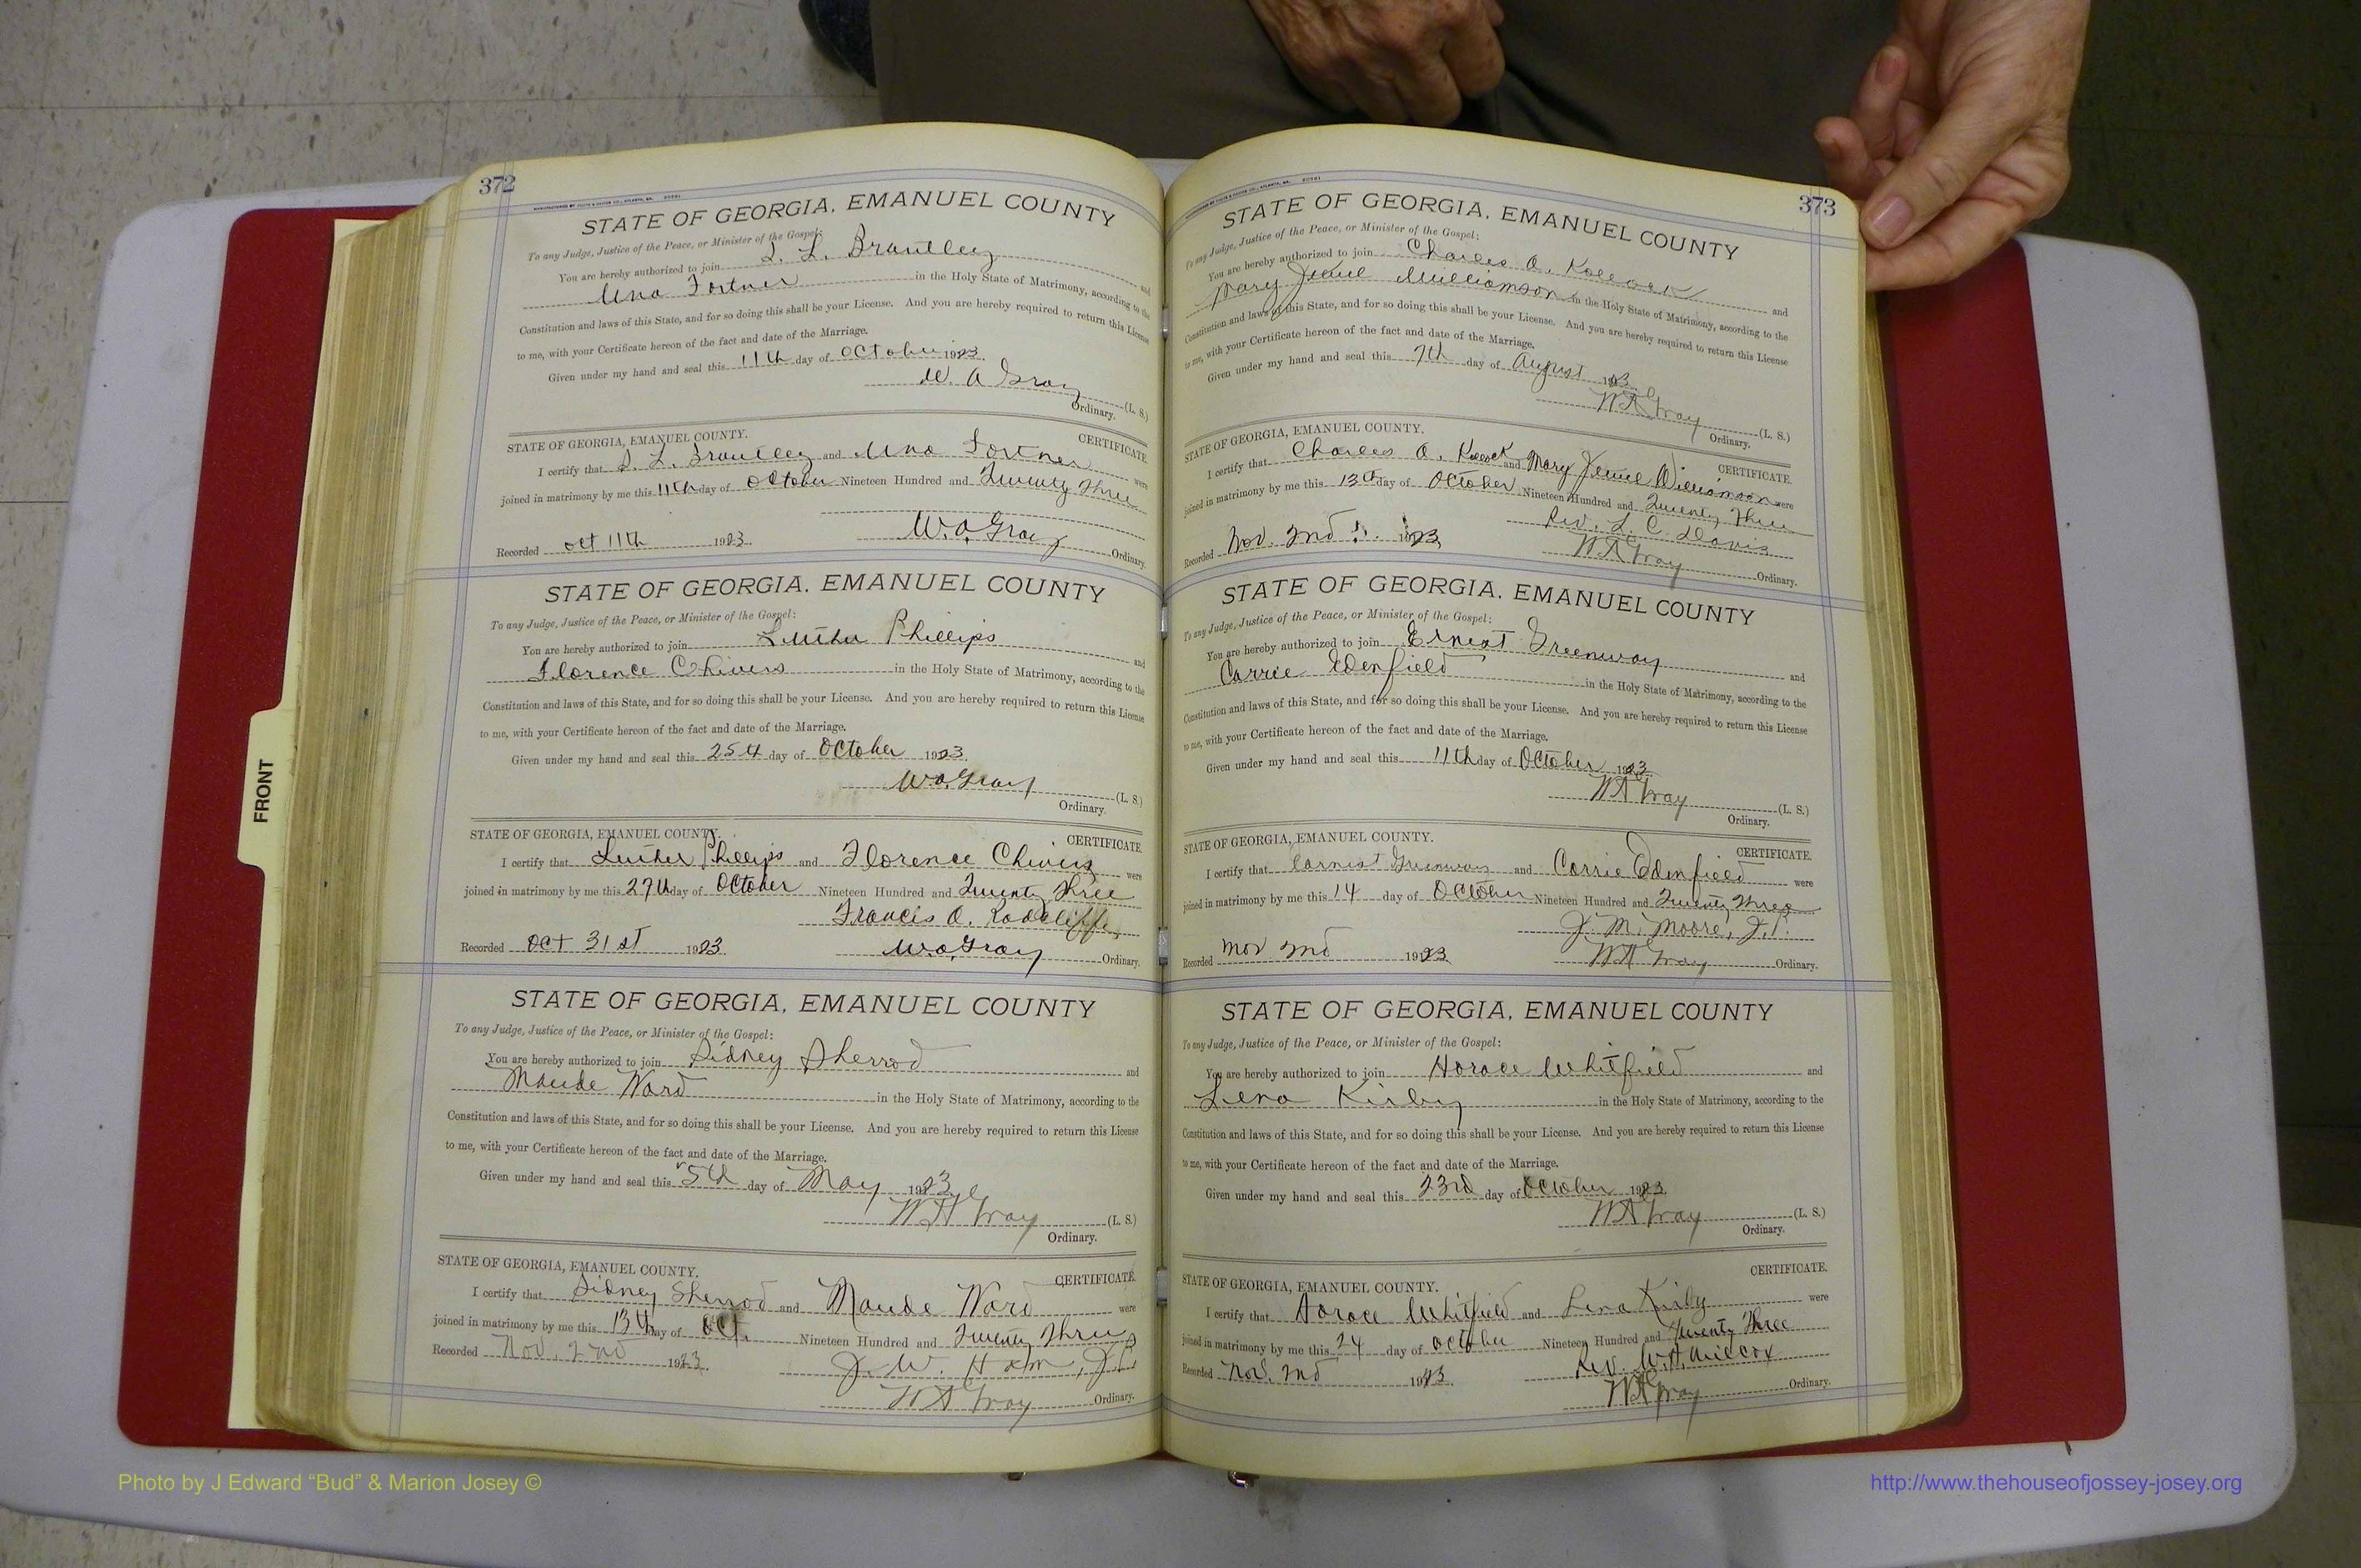 372
STATE OF GEORGIA, EMANUEL COUNTY
To any Judge, Justice of the Peace, or Minister of the Gospel:
You are hereby authorized to join L. Brantley and
Una Fortner in the Holy State of Matrimony, according to the
Constitution and laws of this State, and for so doing this shall be your License. And you are hereby required to return this License
to me, with your Certificate hereon of the fact and date of the Marriage.
Given under my hand and seal this 11th day of October 1923.
W. A Gray (L. S.)
Ordinary.
STATE OF GEORGIA, EMANUEL COUNTY. CERTIFICATE.
I certify that L. Brantley and Una Fortner were
joined in matrimony by me this 11th day of October Nineteen Hundred and Twenty Three
W.A. Gray
Recorded Oct 11th 1923. Ordinary.
STATE OF GEORGIA, EMANUEL COUNTY
To any Judge, Justice of the Peace, or Minister of the Gospel:
You are hereby authorized to join Luther Phillips and
Florence Chivers in the Holy State of Matrimony, according to the
Constitution and laws of this State, and for so doing this shall be your License. And you are hereby required to return this License
to me, with your Certificate hereon of the fact and date of the Marriage.
Given under my hand and seal this 25th day of October 1923.
W.A. Gray (L. S.)
Ordinary.
STATE OF GEORGIA, EMANUEL COUNTY. CERTIFICATE.
I certify that Luther Phillips and Florence Chivers were
joined in matrimony by me this 27th day of October Nineteen Hundred and Twenty Three
Francis A. Radcliffe
Recorded Oct 31st 1923. W.A. Gray Ordinary.
STATE OF GEORGIA, EMANUEL COUNTY
To any Judge, Justice of the Peace, or Minister of the Gospel:
You are hereby authorized to join Sidney Sherrod and
Maude Ward in the Holy State of Matrimony, according to the
Constitution and laws of this State, and for so doing this shall be your License. And you are hereby required to return this License
to me, with your Certificate hereon of the fact and date of the Marriage.
Given under my hand and seal this 5th day of May 1923
W A Gray (L. S.)
Ordinary.
STATE OF GEORGIA, EMANUEL COUNTY. CERTIFICATE.
I certify that Sidney Sherrod and Maude Ward were
joined in matrimony by me this 13th day of Oct. Nineteen Hundred and Twenty Three
Recorded Nov. 2nd 1923. J. W. J.P.
W A Gray Ordinary.
373
STATE OF GEORGIA, EMANUEL COUNTY
To any Judge, Justice of the Peace, or Minister of the Gospel:
You are hereby authorized to join Charles A. Kollock and
Mary Jewel Williamson in the Holy State of Matrimony, according to the
Constitution and laws of this State, and for so doing this shall be your License. And you are hereby required to return this License
to me, with your Certificate hereon of the fact and date of the Marriage.
Given under my hand and seal this 7th day of August 1923.
W A Gray (L. S.)
Ordinary.
STATE OF GEORGIA, EMANUEL COUNTY. CERTIFICATE.
I certify that Charles A. and Mary Jewel Williamson were
joined in matrimony by me this 13th day of October Nineteen Hundred and Twenty Three
Rev. L. C. Davis
Recorded Nov. 2nd 1923. W A Gray Ordinary.
STATE OF GEORGIA, EMANUEL COUNTY
To any Judge, Justice of the Peace, or Minister of the Gospel:
You are hereby authorized to join Ernest Greenway and
Carrie Edenfield in the Holy State of Matrimony, according to the
Constitution and laws of this State, and for so doing this shall be your License. And you are hereby required to return this License
to me, with your Certificate hereon of the fact and date of the Marriage.
Given under my hand and seal this 11th day of October 1923
W A Gray (L. S.)
Ordinary.
STATE OF GEORGIA, EMANUEL COUNTY. CERTIFICATE.
I certify that Earnest Greenway and Carrie Edenfield were
joined in matrimony by me this 14 day of October Nineteen Hundred and Twenty Three
J. M. Moore, J.P.
Recorded Nov 2nd 1923. W A Gray Ordinary.
STATE OF GEORGIA, EMANUEL COUNTY
To any Judge, Justice of the Peace, or Minister of the Gospel:
You are hereby authorized to join Horace Whitfield and
Lena Kirby in the Holy State of Matrimony, according to the
Constitution and laws of this State, and for so doing this shall be your License. And you are hereby required to return this License
to me, with your Certificate hereon of the fact and date of the Marriage.
Given under my hand and seal this 23rd day of October 1923.
W A Gray (L. S.)
Ordinary.
STATE OF GEORGIA, EMANUEL COUNTY. CERTIFICATE.
I certify that Horace Whitfield and Lena Kirby were
joined in matrimony by me this 24 day of October Nineteen Hundred and Twenty Three
Recorded Nov. 2nd 1923. Rev. W.A. Wilcox
W A Gray Ordinary.
FRONT
Photo by J Edward “Bud” & Marion Josey ©
http://www.thehouseofjossey-josey.org